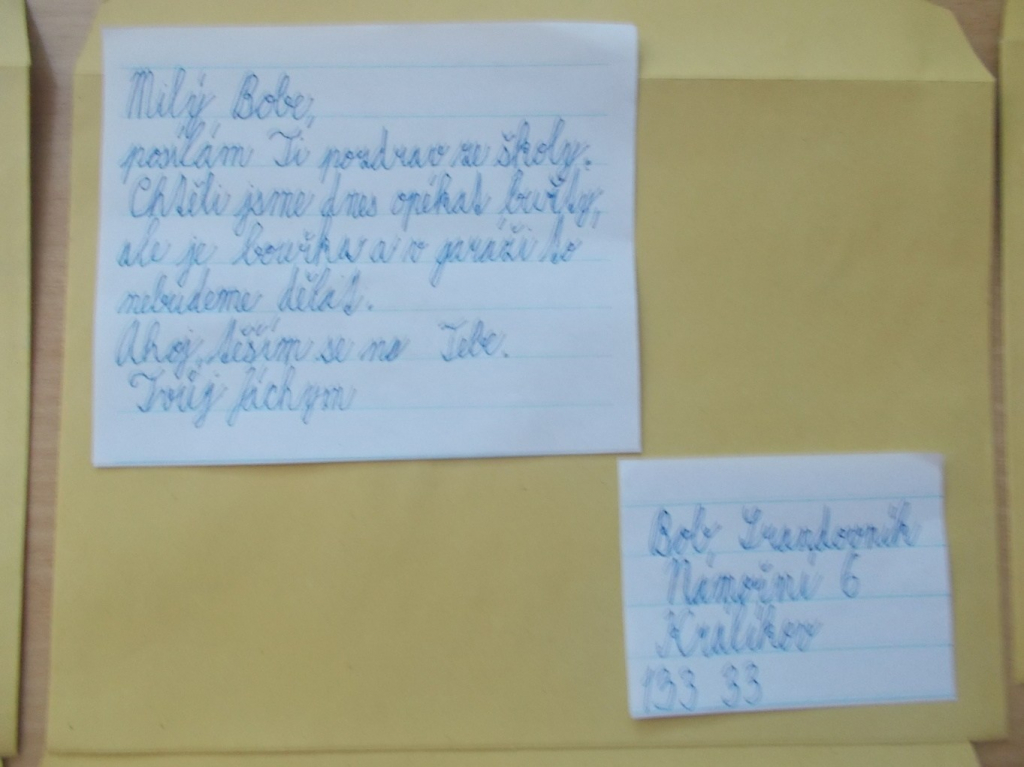 Milý Bobe,
posílám Ti pozdrav ze školy.
Chtěli jsme dnes opékat buřty,
ale je bouřka a v garáži to
nebudeme dělat.
Ahoj, těším se na Tebe.
Tvůj Jáchym
Bob Srandovník
Námořní 6
Králíkov
133 33